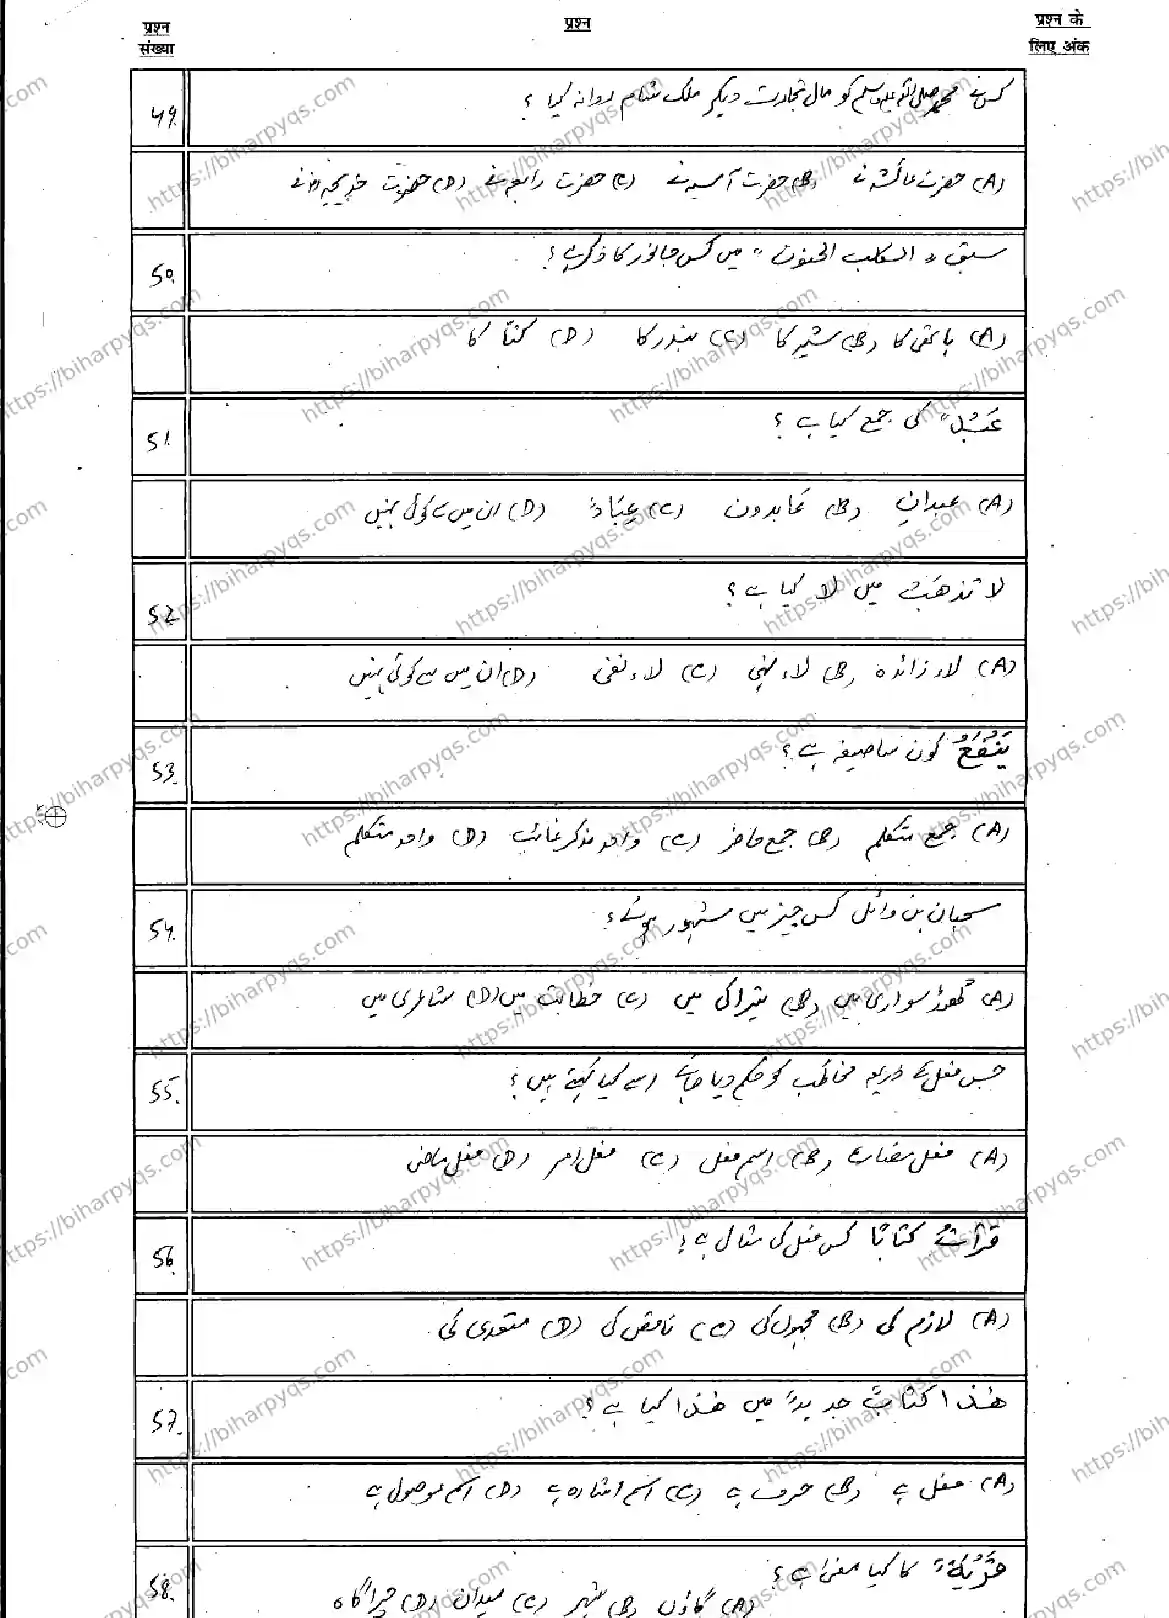 प्रश्न संख्या
प्रश्न
प्रश्न के लिए अंक
49. کس نے محمد صلی اللہ علیہ وسلم کو مال تجارت دیکر ملک شام روانہ کیا ؟
(A) حضرت عائشہ نے (B) حضرت آسیہ نے (C) حضرت رابعہ نے (D) حضرت خدیجہ نے
50. سبق "الکلب الجنون" میں کس جانور کا ذکر ہے؟
(A) ہاتھی کا (B) شیر کا (C) بندر کا (D) کتّا کا
51. عَبْدٌ کی جمع کیا ہے ؟
(A) عبدانِ (B) عابدون (C) عِبَادٌ (D) ان میں سے کوئی نہیں
52. لا تذھَبْ میں لا کیا ہے ؟
(A) لاء زائدہ (B) لاء نہی (C) لاء نفی (D) ان میں سے کوئی نہیں
53. يَنْفَعُ کون سا صیغہ ہے ؟
(A) جمع متکلم (B) جمع حاضر (C) واحد مذکر غائب (D) واحد متکلم
54. سحبان بن وائل کس چیز میں مشہور ہوئے؟
(A) گھوڑ سواری میں (B) تیراکی میں (C) خطابت میں (D) شاعری میں
55. جس فعل کے ذریعہ مخاطب کو حکم دیا جائے اسے کیا کہتے ہیں ؟
(A) فعل مضارع (B) اسم فعل (C) فعل امر (D) فعل ماضی
56. قرأتُ کتابًا کس فعل کی مثال ہے ؟
(A) لازم کی (B) مجہول کی (C) ناقص کی (D) متعدی کی
57. ھٰذا کتابٌ جدیدٌ میں ھٰذا کیا ہے ؟
(A) فعل ہے (B) حرف ہے (C) اسم اشارہ ہے (D) اسم موصول ہے
58. قَرْيَةٌ کا کیا معنیٰ ہے ؟
(A) گاؤں (B) شہر (C) میدان (D) چراگاہ
https://biharpyqs.com